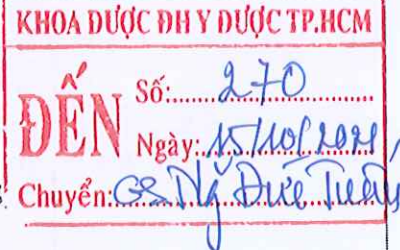 KHOA DƯỢC ĐH Y DƯỢC TP.HCM
ĐẾN
Số: 270
Ngày: 15/10/
Chuyển: GS. Ng Đức